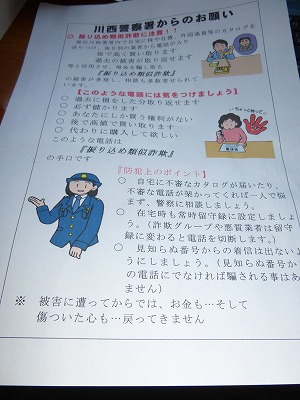 川西警察署からのお願い
◎ 振り込め類似詐欺に注意!!
現在川西警察管内で自宅に株や社債、外国通貨等のカタログを
送りつけ、後日別の業者から電話が入り
後で高く買い取ります
過去の被害が取り戻せます
等と信用させ、現金を騙し取る
『振り込め類似詐欺』
の被害が多発し、相談も多数寄せられて
います。
【このような電話には気をつけましょう】
○ 過去に損をした分取り返せます
○ 必ず儲かります
○ あなたにしか買う権利がない
○ 後で高値で買い取ります
○ 代わりに購入して欲しい
ちょっと待って、
このような電話は
『振り込め類似詐欺』
の手口です
『防犯上のポイント』
○ 自宅に不審なカタログが届いたり、
不審な電話が架かってくれば一人で悩
まず、警察に相談しましょう。
○ 在宅時も常時留守録に設定しましょ
う。(詐欺グループや悪質業者は留守
録に変わると電話を切断します。)
○ 見知らぬ番号からの着信は出ないよ
うにしましょう。(見知らぬ番号か
の電話にでなければ騙される事はあ
ません)
※ 被害に遭ってからでは、お金も…そして
傷ついた心も…戻ってきません